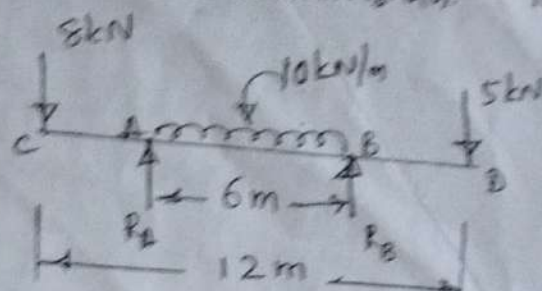 8kN
10kN/m
5kN
C A B D
6m
RA RB
12m